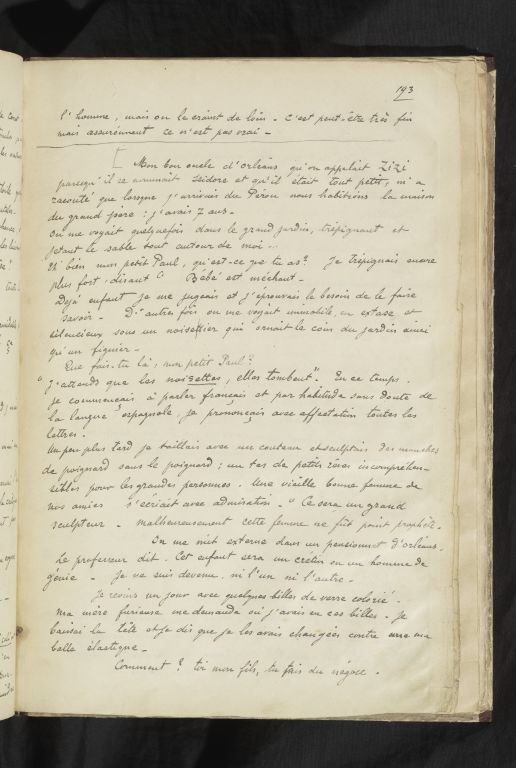 193
l'homme, mais on le craint de loin - c'est peut-être très fin
mais assurément ce n'est pas vrai -
[ Mon bon oncle d'orléans qu'on appelait Zizi
parcequ'il se nommait Isidore et qu'il était tout petit, m'a
raconté que lorsque j'arrivais du Pérou nous habitions la maison
du grand père : j'avais 7 ans -
on me voyait quelquefois dans le grand jardin, trépignant et
jetant le sable tout autour de moi ...
Eh bien mon petit Paul, qu'est-ce que tu as? Je trépignais encore
plus fort, disant " Bébé est méchant -
Déjà enfant je me jugeais et j'éprouvais le besoin de le faire
savoir - D'autre fois on me voyait immobile, en extase et
silencieux sous un noisettier qui ornait le coin du jardin ainsi
qu'un figuier -
Que fais-tu là, mon petit Paul?
"J'attends que les noisettes, elles tombent". En ce temps.
je commencais à parler français et par habitude sans doute de
la langue espagnole, je prononçais avec affectation toutes les
lettres.
Un peu plus tard je taillais avec un couteau et sculptais des manches
de poignard sans le poignard ; un tas de petits rêves incompréhen-
sibles pour les grandes personnes. Une vieille bonne femme de
nos amies s'écriait avec admiration - " Ce sera un grand
sculpteur - Malheureusement cette femme ne fût point prophète.
On me mit externe dans un pensionnat d'orléans.
Le professeur dit. Cet enfant sera un crétin ou un homme de
génie - Je ne suis devenu, ni l'un ni l'autre -
Je revins un jour avec quelques billes de verre colorié.
Ma mère furieuse me demanda où j'avais eu ces billes - Je
baissai la tête et je dis que je les avais changées contre ma
balle élastique -
Comment? toi mon fils, tu fais du négoce.